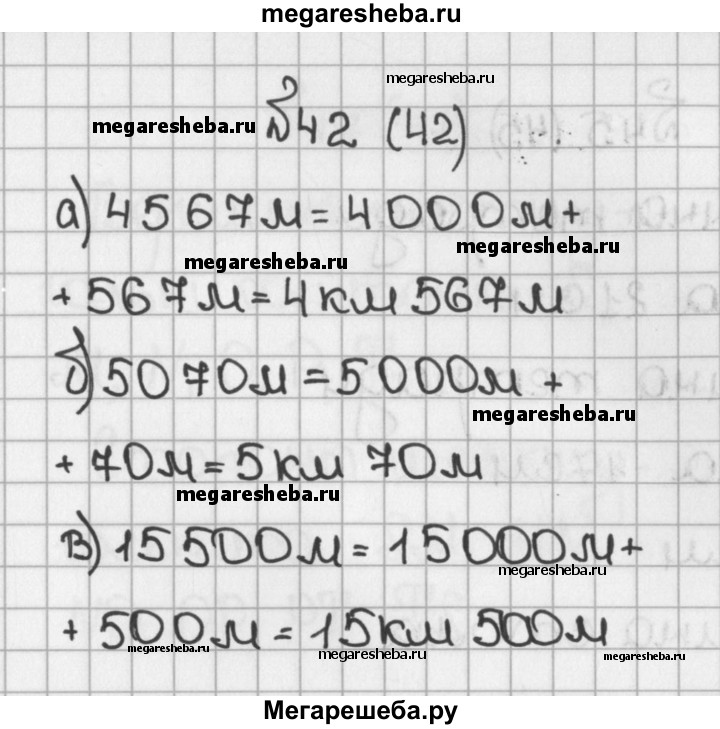 megaresheba.ru
megaresheba.ru
megaresheba.ru
№42 (42)
а) 4567м = 4000м +
megaresheba.ru
megaresheba.ru
+ 567м = 4км 567м
б) 5070м = 5000м +
megaresheba.ru
+ 70м = 5км 70м
megaresheba.ru
в) 15500м = 15000м +
megaresheba.ru
+ 500м = 15км 500м
megaresheba.ru
megaresheba.ru
megaresheba.ru
Мегарешеба.ру